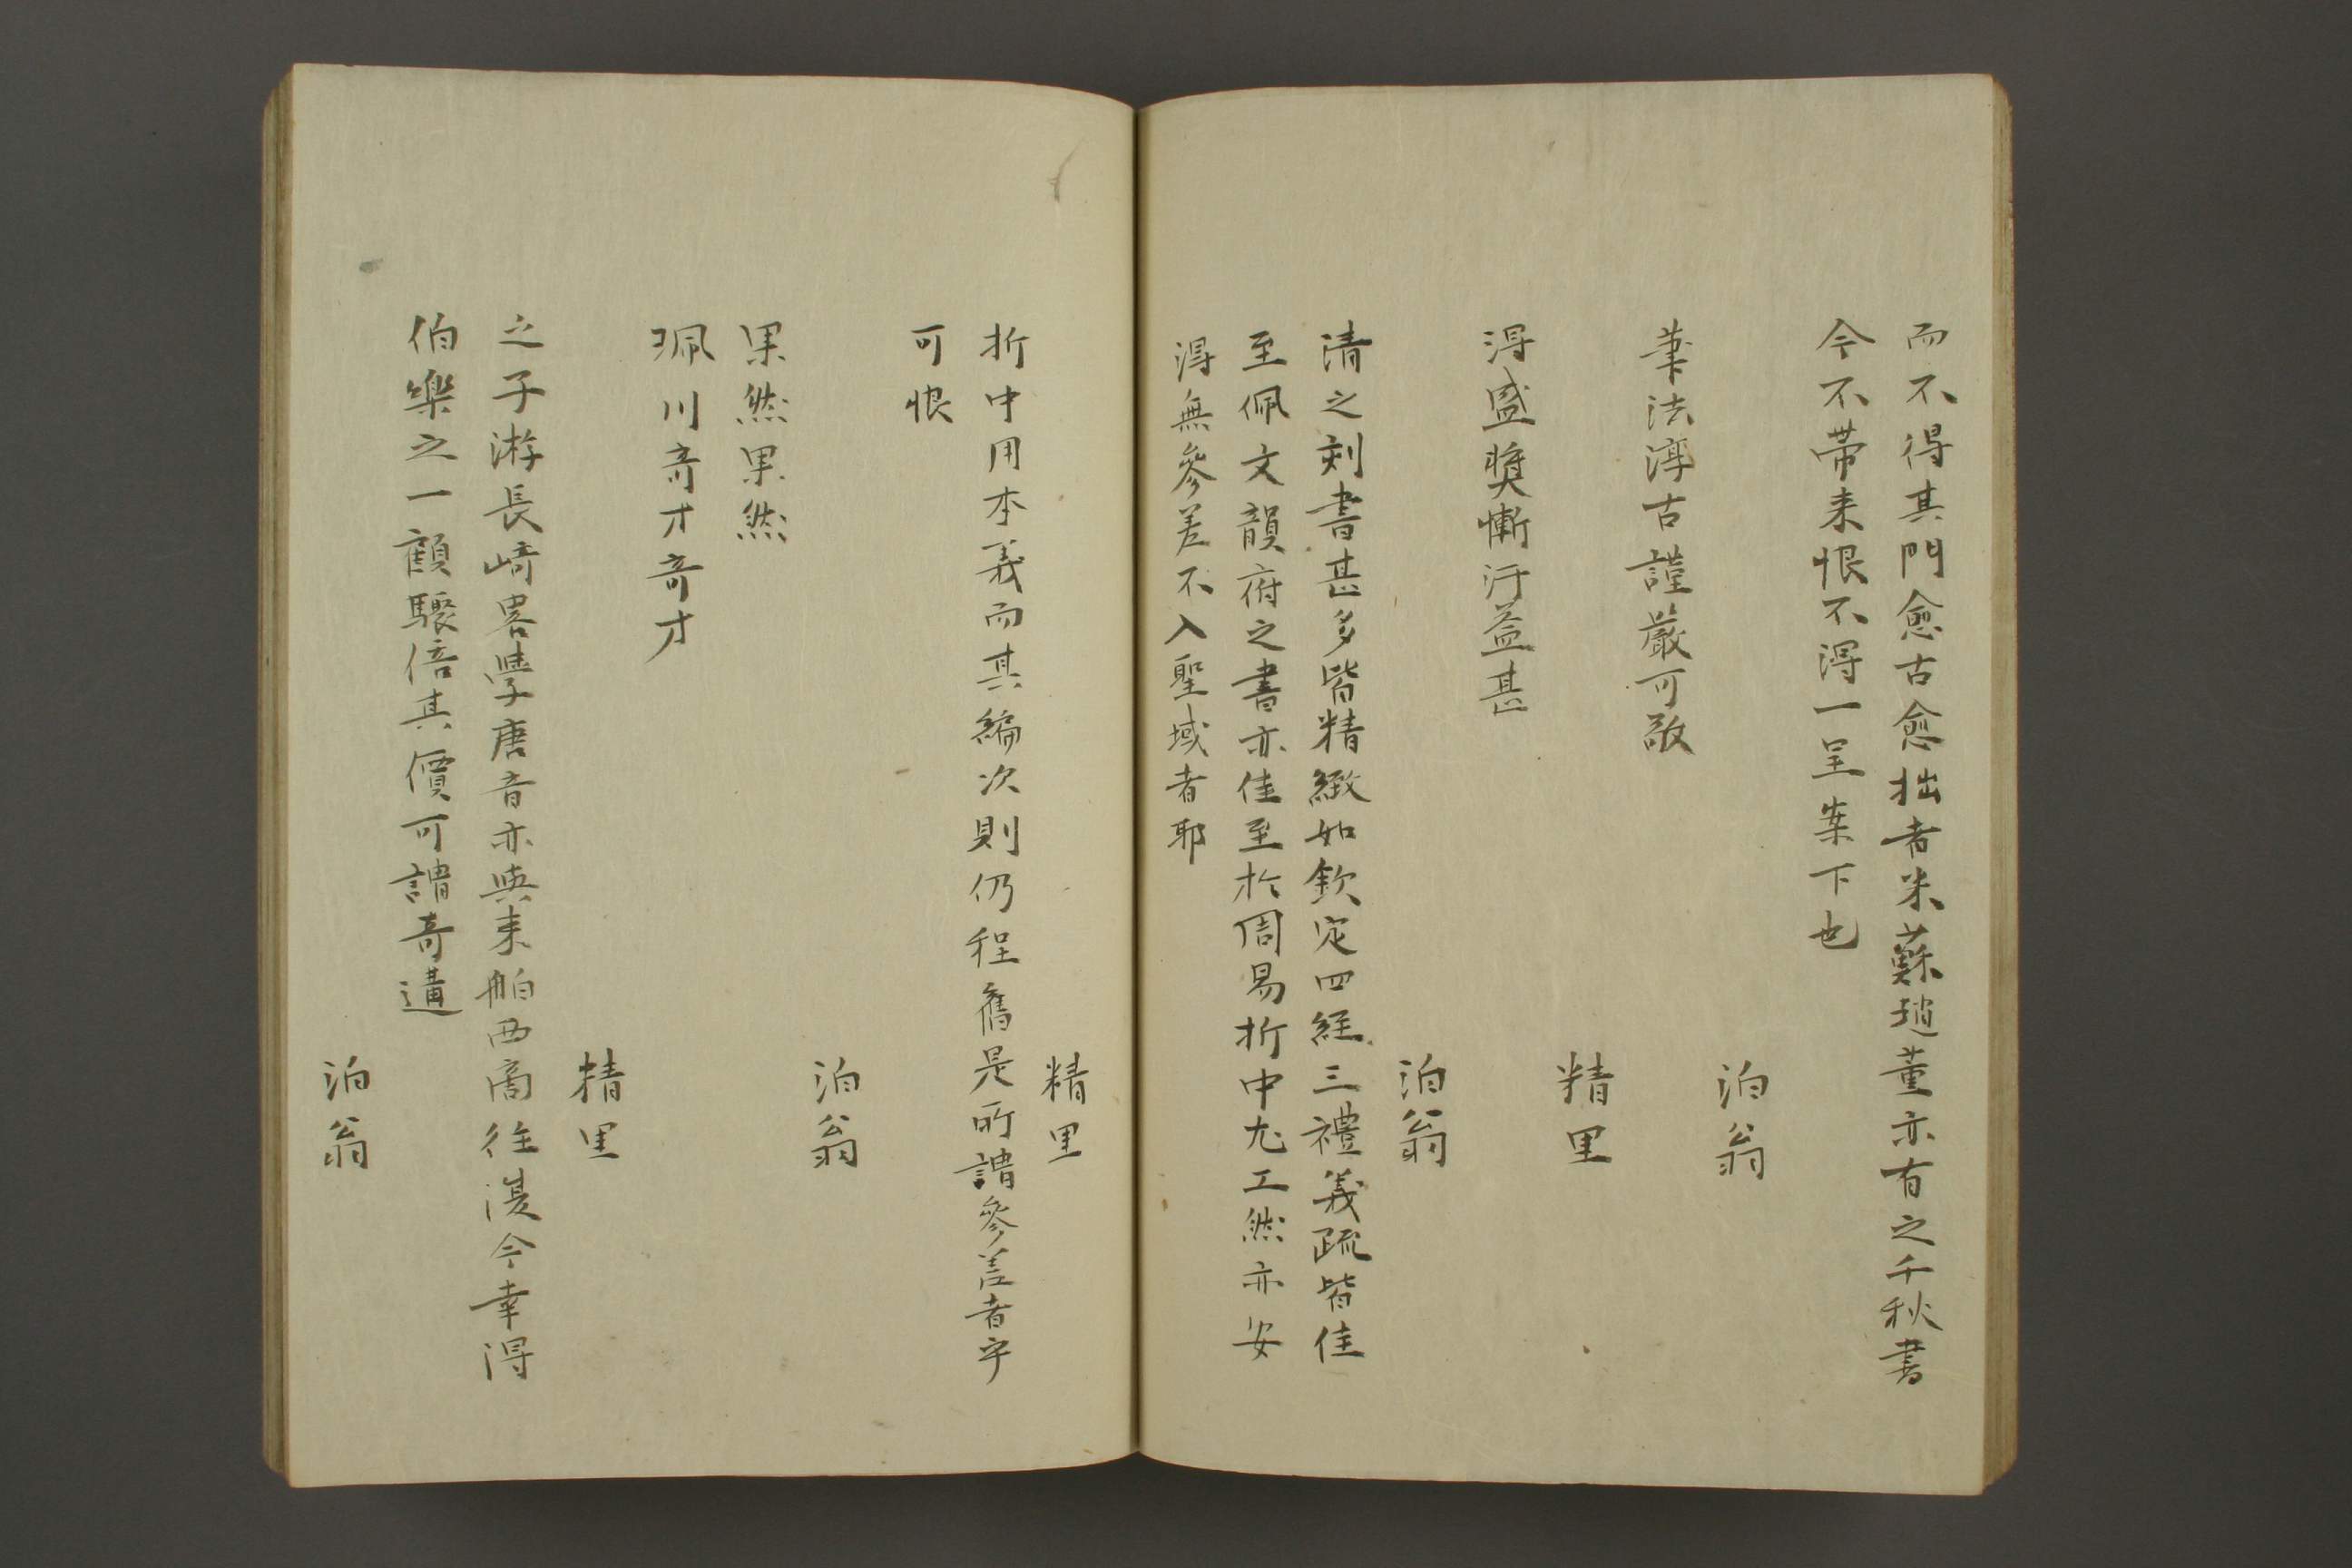 而不得其門愈古愈拙者米蘇趙董亦有之千秋書
今不帶来恨不得一呈案下也
泊翁
筆法淳古謹嚴可敬
精里
得盛奬慚汗益甚
泊翁
清之刻書甚多皆精緻如欽定四経三禮義疏皆佳
至佩文韻府之書亦佳至於周易折中尤工然亦安
得無參差不入聖域者耶
精里
折中用本義而其編次則仍程舊是所謂參差者乎
可恨
泊翁
果然果然
珮川奇才奇才
精里
之子游長崎畧學唐音亦與来舶西商往復今幸得
伯樂之一顧驟倍其價可謂奇遘
泊翁